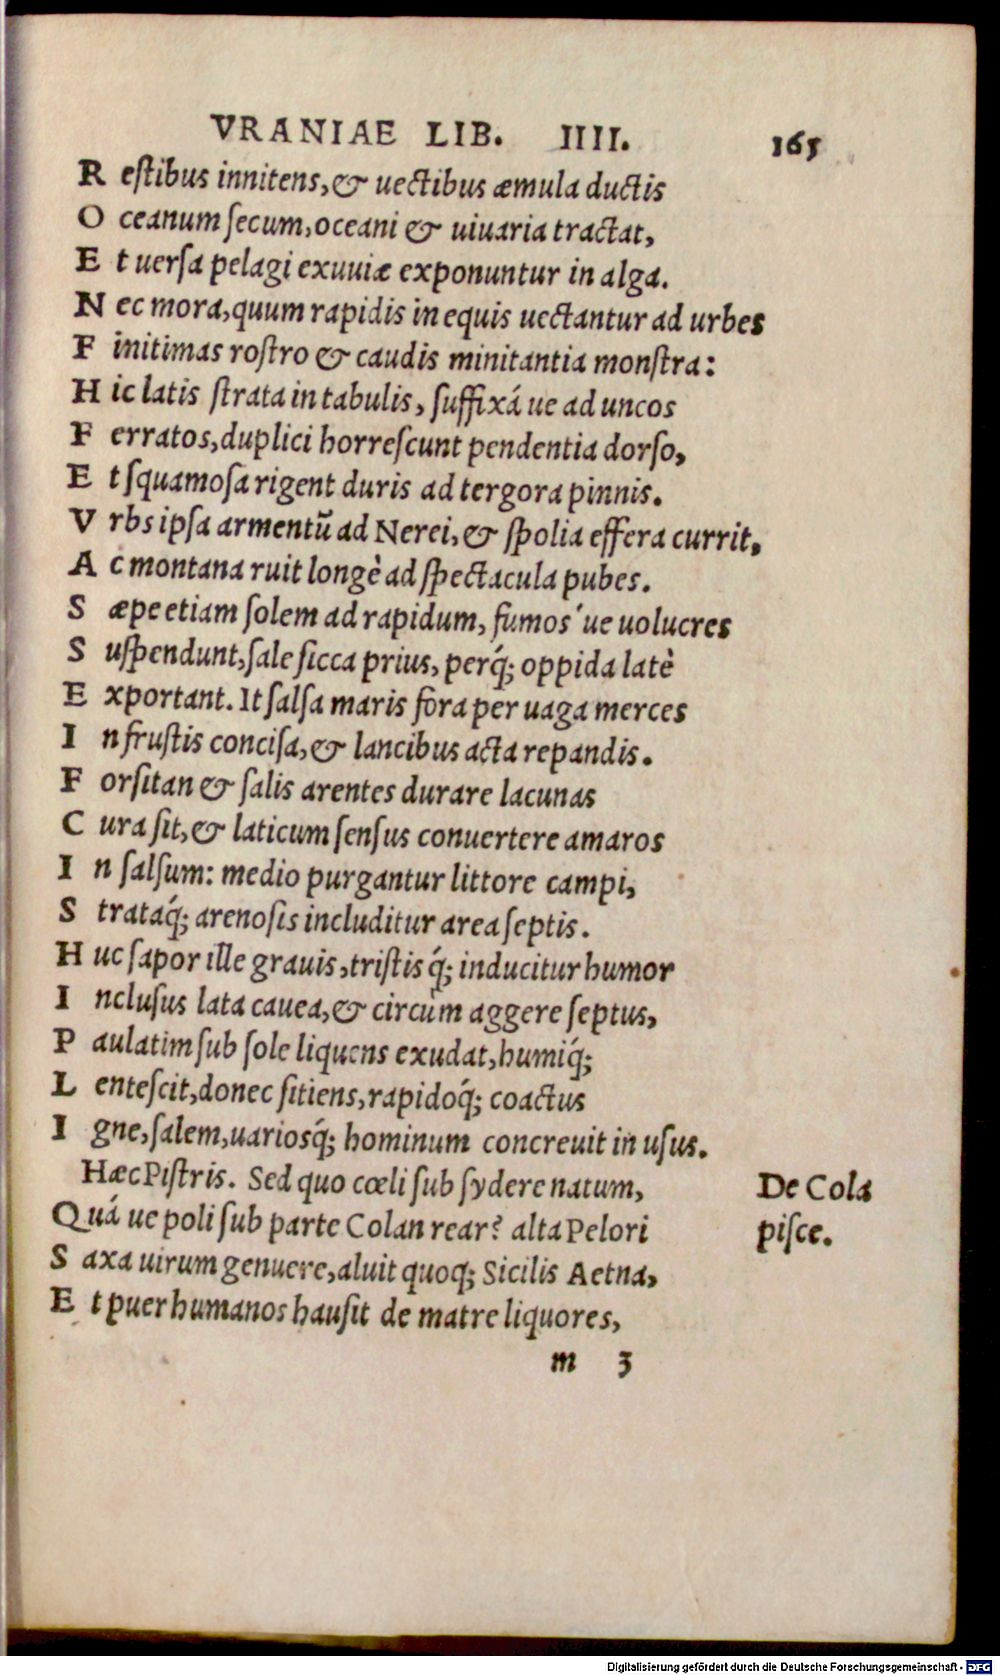 VRANIAE LIB. IIII. 165
R eſtibus innitens,& uectibus æmula ductis
O ceanum ſecum,oceani & uiuaria tractat,
E t uerſa pelagi exuuiæ exponuntur in alga.
N ec mora,quum rapidis in equis uectantur ad urbes
F initimas roſtro & caudis minitantia monſtra:
H ic latis ſtrata in tabulis, ſuffixá ue ad uncos
F erratos,duplici horreſcunt pendentia dorſo,
E t ſquamoſa rigent duris ad tergora pinnis.
V rbs ipſa armentũ ad Nerei,& ſpolia effera currit,
A c montana ruit longè ad ſpectacula pubes.
S æpe etiam ſolem ad rapidum, fumos´ue uolucres
S uſpendunt,ſale ſicca prius, perq́; oppida latè
E xportant. It ſalſa maris fora per uaga merces
I n fruſtis conciſa,& lancibus acta repandis.
F orſitan & ſalis arentes durare lacunas
C ura ſit,& laticum ſenſus conuertere amaros
I n ſalſum: medio purgantur littore campi,
S trataq́; arenoſis includitur area ſeptis.
H uc ſapor ille grauis,triſtisq́; inducitur humor
I ncluſus lata cauea,& circùm aggere ſeptus,
P aulatim ſub ſole liquens exudat,humiq́;
L enteſcit,donec ſitiens,rapidoq́; coactus
I gne,ſalem,uariosq́; hominum concreuit in uſus.
Hæc Piſtris. Sed quo cœli ſub ſydere natum,
Quá ue poli ſub parte Colan rear? alta Pelori
S axa uirum genuere,aluit quoq; Sicilis Aetna,
E t puer humanos hauſit de matre liquores,
De Cola
piſce.
m 3
Digitalisierung gefördert durch die Deutsche Forschungsgemeinschaft - DFG